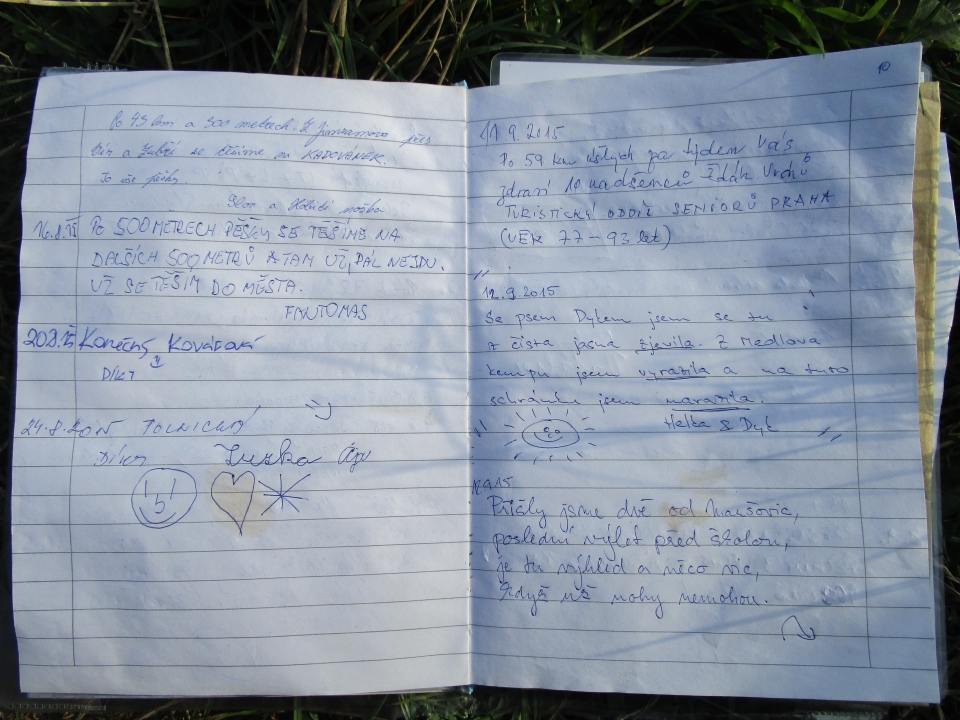 Po 43 km a 300 metrech. Z Jimramova přes
a se těšíme na
To vše pěšky.
16.8.15 Po 500 METRECH PĚŠKY SE TĚŠÍME NA
DALŠÍCH 500 METRŮ A TAM UŽ DÁL NEJDU.
UŽ SE TĚŠÍM DO MĚSTA.
FANTOMAS
20.8.15 Konečný Kovářová
DÍKY
24.8.2015
Díky Zuzka
10
11.9.2015
Po 59 km ušlých za týden Vás
zdraví 10 nadšenců Žďár. Vrchů
TURISTICKÝ ODDÍL SENIORŮ PRAHA
(VĚK 77-93 let)
12.9.2015
Se psem Dykem jsem se tu
z čista jasna zjevila. Z Medlova
kempu jsem vyrazila a na tuto
schránku jsem narazila.
Helka & Dyk
12.9.15
Přišly jsme dvě od Maršovic,
poslední výlet před školou,
je tu výhled a něco víc,
Když už nohy nemohou.